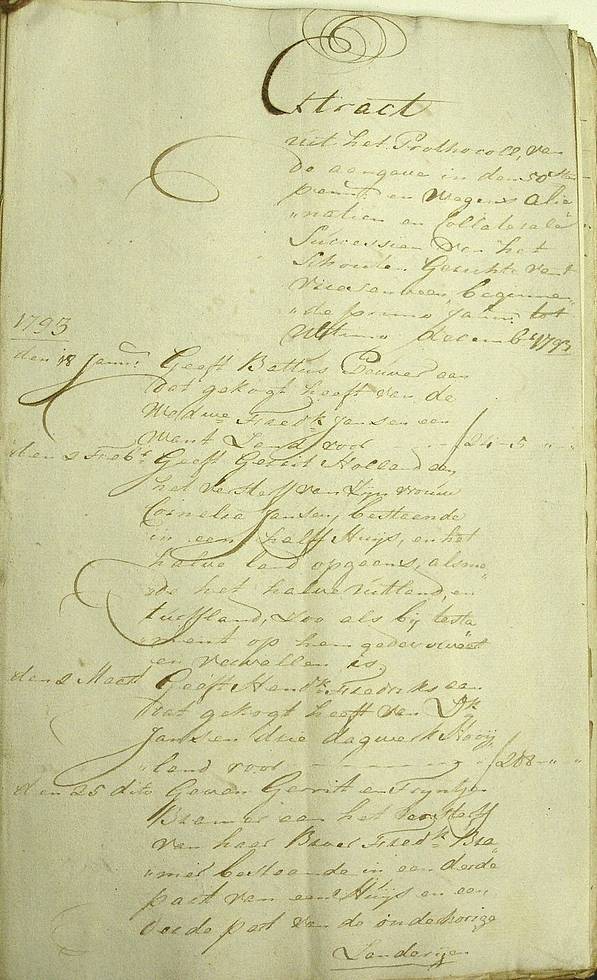 Extract
uit het Prothocoll, van
de aangave in den 50ste
penn: en wegens Alie
natien en Collaterale
Successien van het
Schouten Gerichte van't
Vriesenveen, beginnen
de primo Janu: tot
Ultimo Decemb: 1793
1793
den 18 Janu: Geeft Battus Bouwer aan
dat gekogt heeft van de
Wedwe Fredk Jansen een
Want Land voor f 24-5 "
den 2 Feb: Geeft Gerrit Holland aan
het versterf van Zijn vrouw
Cornelia Jansen, bestaende
in een half Huijs, en het
halve land opgaens, alsme
de het halve uitland, en
turfland, Zoo als bij testa
ment op hem gedevolveert
en vervallen is,
den 2 Maart Geeft Hendk Fredriks aan
dat gekogt heeft van Dk
Jansen drie dagwerk Hooij
land voor f 288-" "
den 25 dito Geven Gerrit en Fryntje
Bramer aan het versterf
van haer Broer Fredk Bra
mer bestaende in een derde
part van een Huijs en een
derde part van de onderhorige
Landerijen